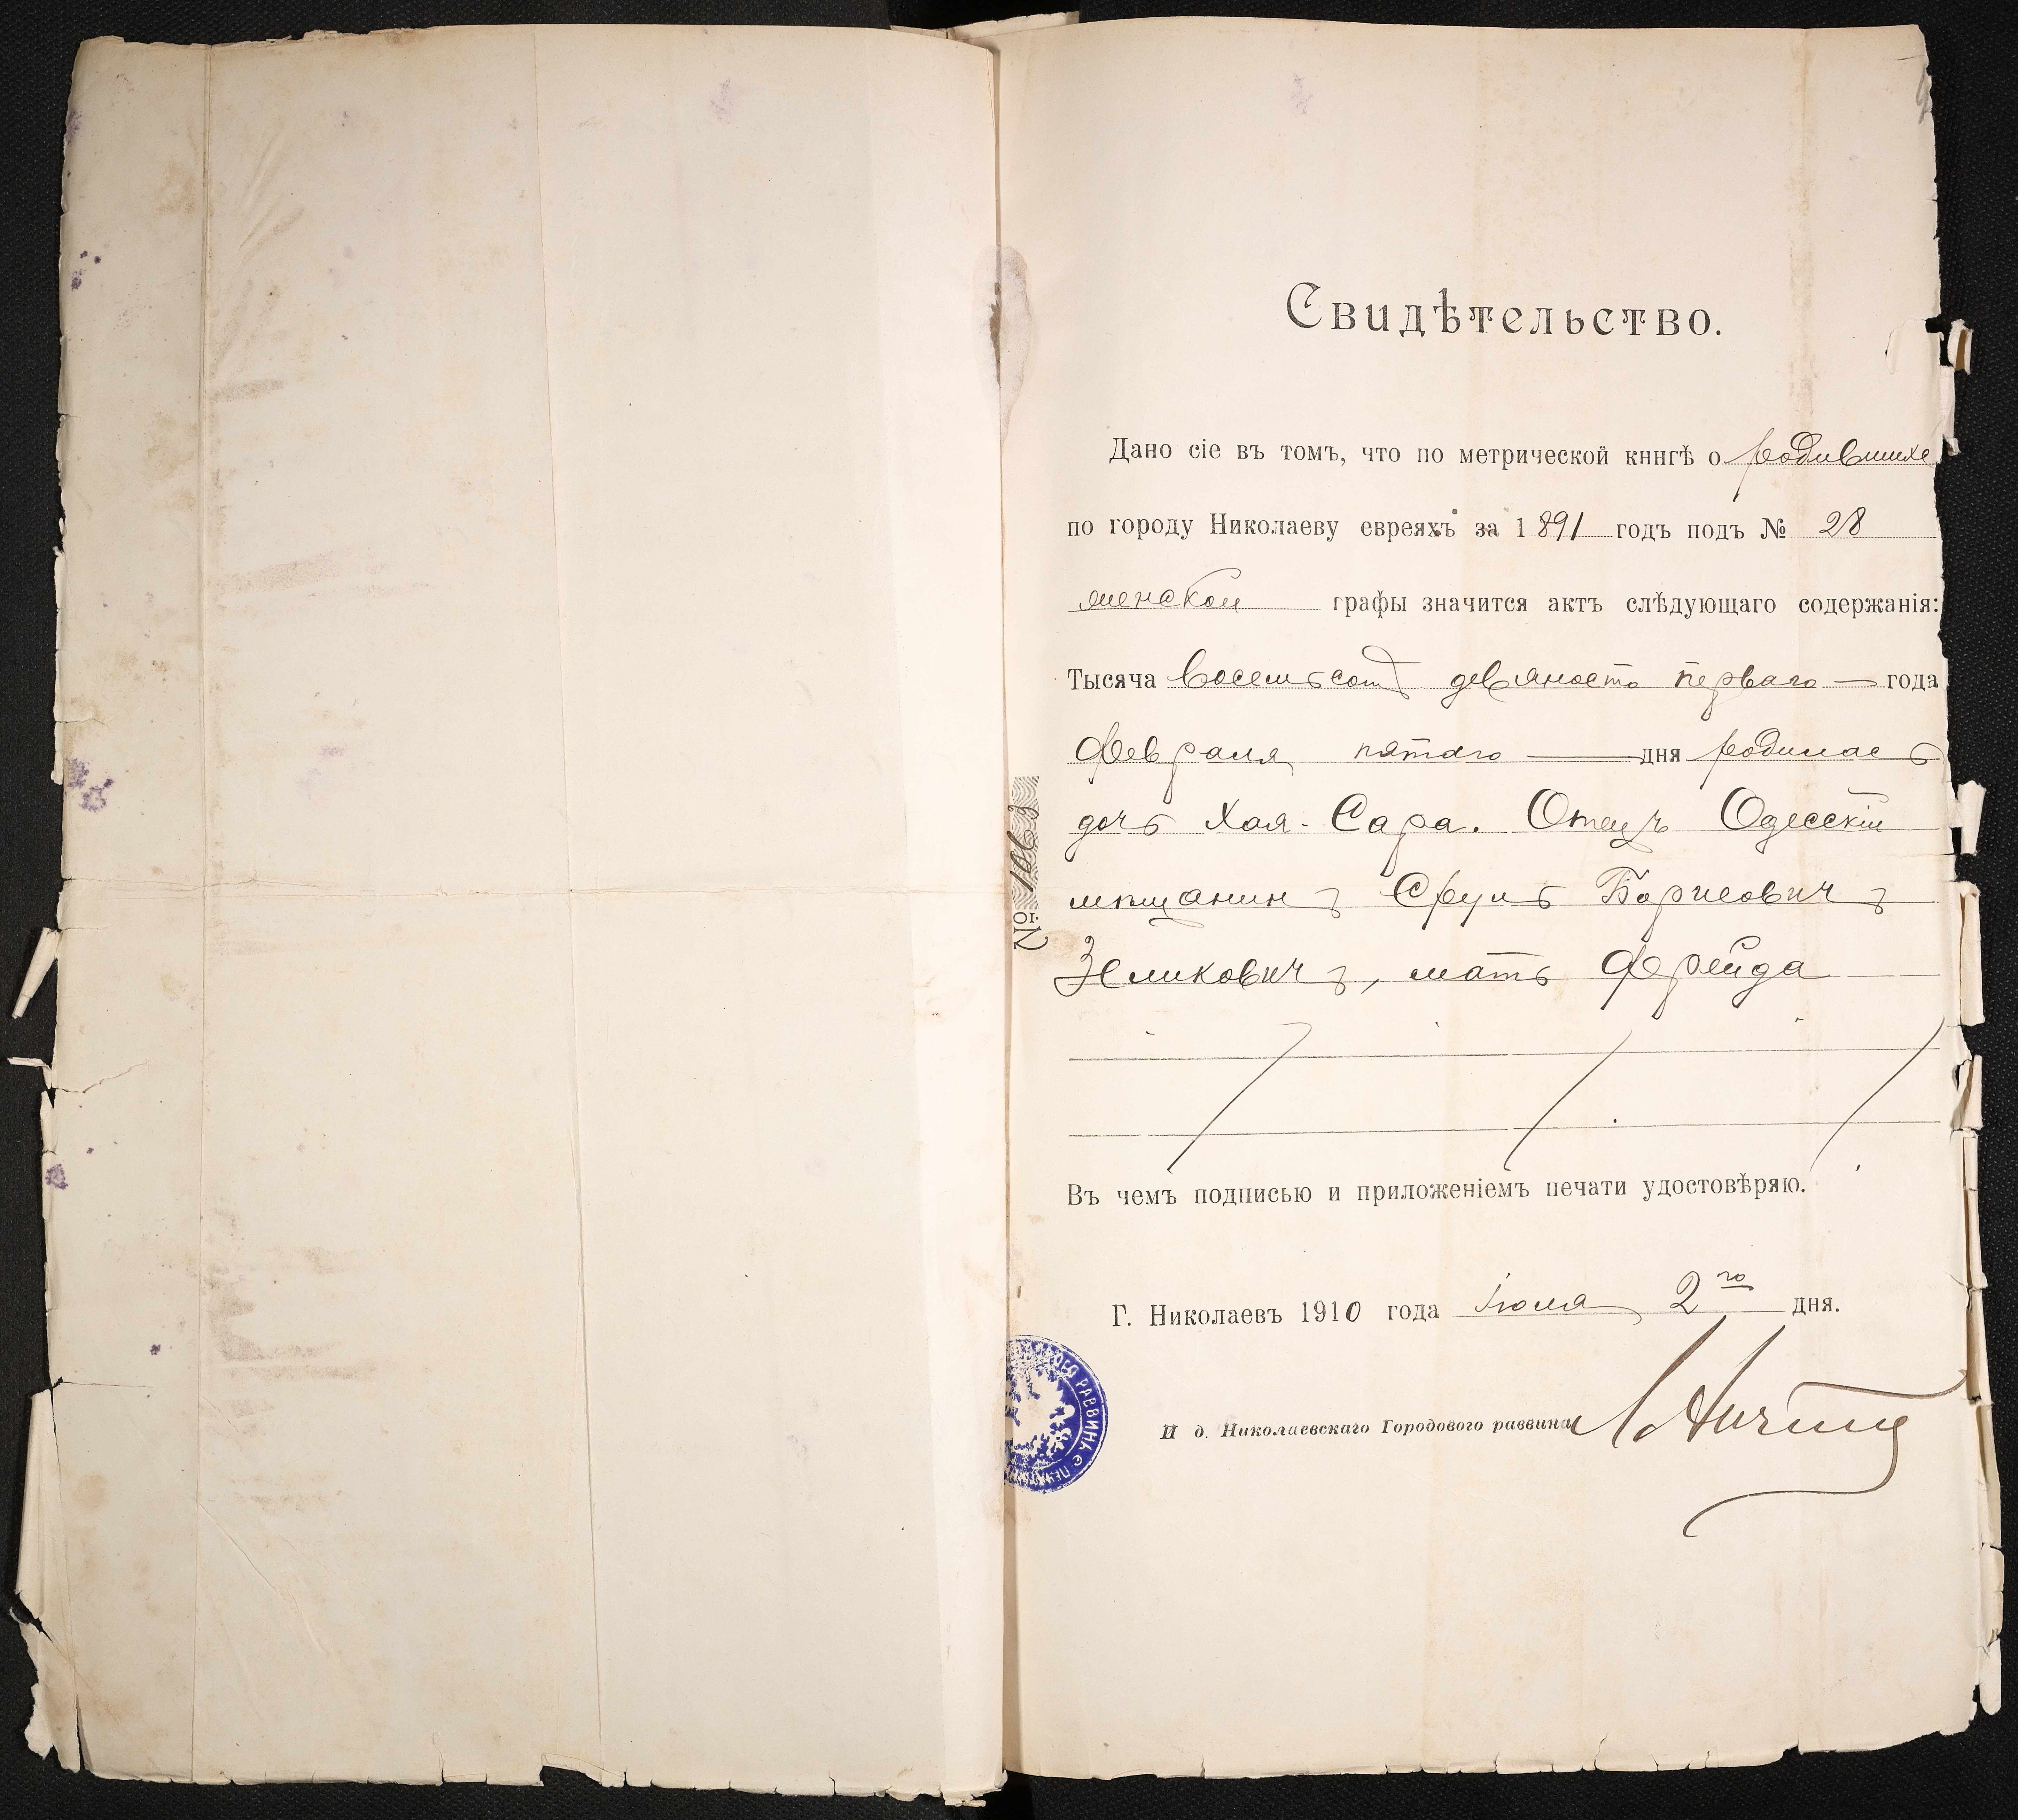 Свидѣтельство.
Дано сіе въ томъ, что по метрической кннгѣ о родившихс
по городу Николаеву евреяхъ за 1891 годъ подъ № 28
женской графы значится актъ слѣдующаго содержанія:
Тысяча восемьсотъ девяносто перваго — года
февраля пятаго — дня родилась
дочь Хая-Сара. Отецъ Одесскій
мѣщанинъ Сруль Борисовичъ
Зеликовичъ, мать Фрейда
Въ чемъ подписью и приложеніемъ печати удостовѣряю.
Г. Николаевъ 1910 года Іюля 2го дня.
И д. Николаевскаго Городового раввина
№ 1063
РАВВИНА